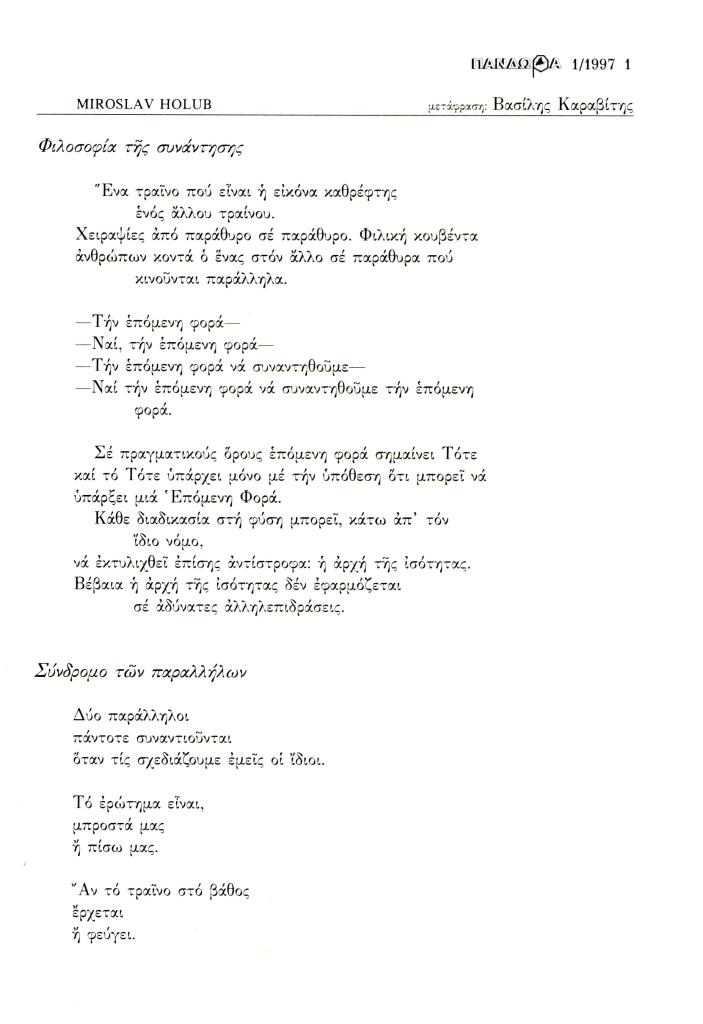 ΠΑΝΔΩΡΑ 1/1997 1
MIROSLAV HOLUB μετάφραση: Βασίλης Καραβίτης
Φιλοσοφία τῆς συνάντησης
Ἕνα τραῖνο πού εἶναι ἡ εἰκόνα καθρέφτης
ἑνός ἄλλου τραίνου.
Χειραψίες ἀπό παράθυρο σέ παράθυρο. Φιλική κουβέντα
ἀνθρώπων κοντά ὁ ἕνας στόν ἄλλο σέ παράθυρα πού
κινοῦνται παράλληλα.
—Τήν ἑπόμενη φορά—
—Ναί, τήν ἑπόμενη φορά—
—Τήν ἑπόμενη φορά νά συναντηθοῦμε—
—Ναί τήν ἑπόμενη φορά νά συναντηθοῦμε τήν ἑπόμενη
φορά.
Σέ πραγματικούς ὅρους ἑπόμενη φορά σημαίνει Τότε
καί τό Τότε ὑπάρχει μόνο μέ τήν ὑπόθεση ὅτι μπορεῖ νά
ὑπάρξει μιά Ἑπόμενη Φορά.
Κάθε διαδικασία στή φύση μπορεῖ, κάτω ἀπ' τόν
ἴδιο νόμο,
νά ἐκτυλιχθεῖ ἐπίσης ἀντίστροφα: ἡ ἀρχή τῆς ἰσότητας.
Βέβαια ἡ ἀρχή τῆς ἰσότητας δέν ἐφαρμόζεται
σέ ἀδύνατες ἀλληλεπιδράσεις.
Σύνδρομο τῶν παραλλήλων
Δύο παράλληλοι
πάντοτε συναντιοῦνται
ὅταν τίς σχεδιάζουμε ἐμεῖς οἱ ἴδιοι.
Τό ἐρώτημα εἶναι,
μπροστά μας
ἤ πίσω μας.
Ἄν τό τραῖνο στό βάθος
ἔρχεται
ἤ φεύγει.